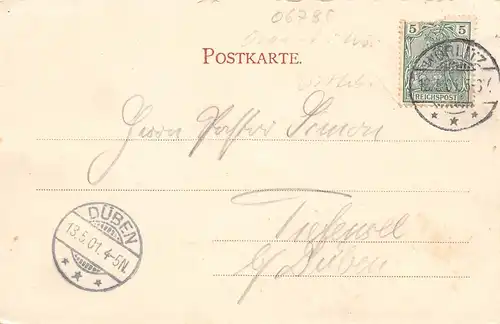 06785
5 5
REICHSPOST
WÖRLITZ
POSTKARTE.
Herrn Pastor Simon
Tiefensee
b/ Düben
DÜBEN
13.5.01. 4-5N.